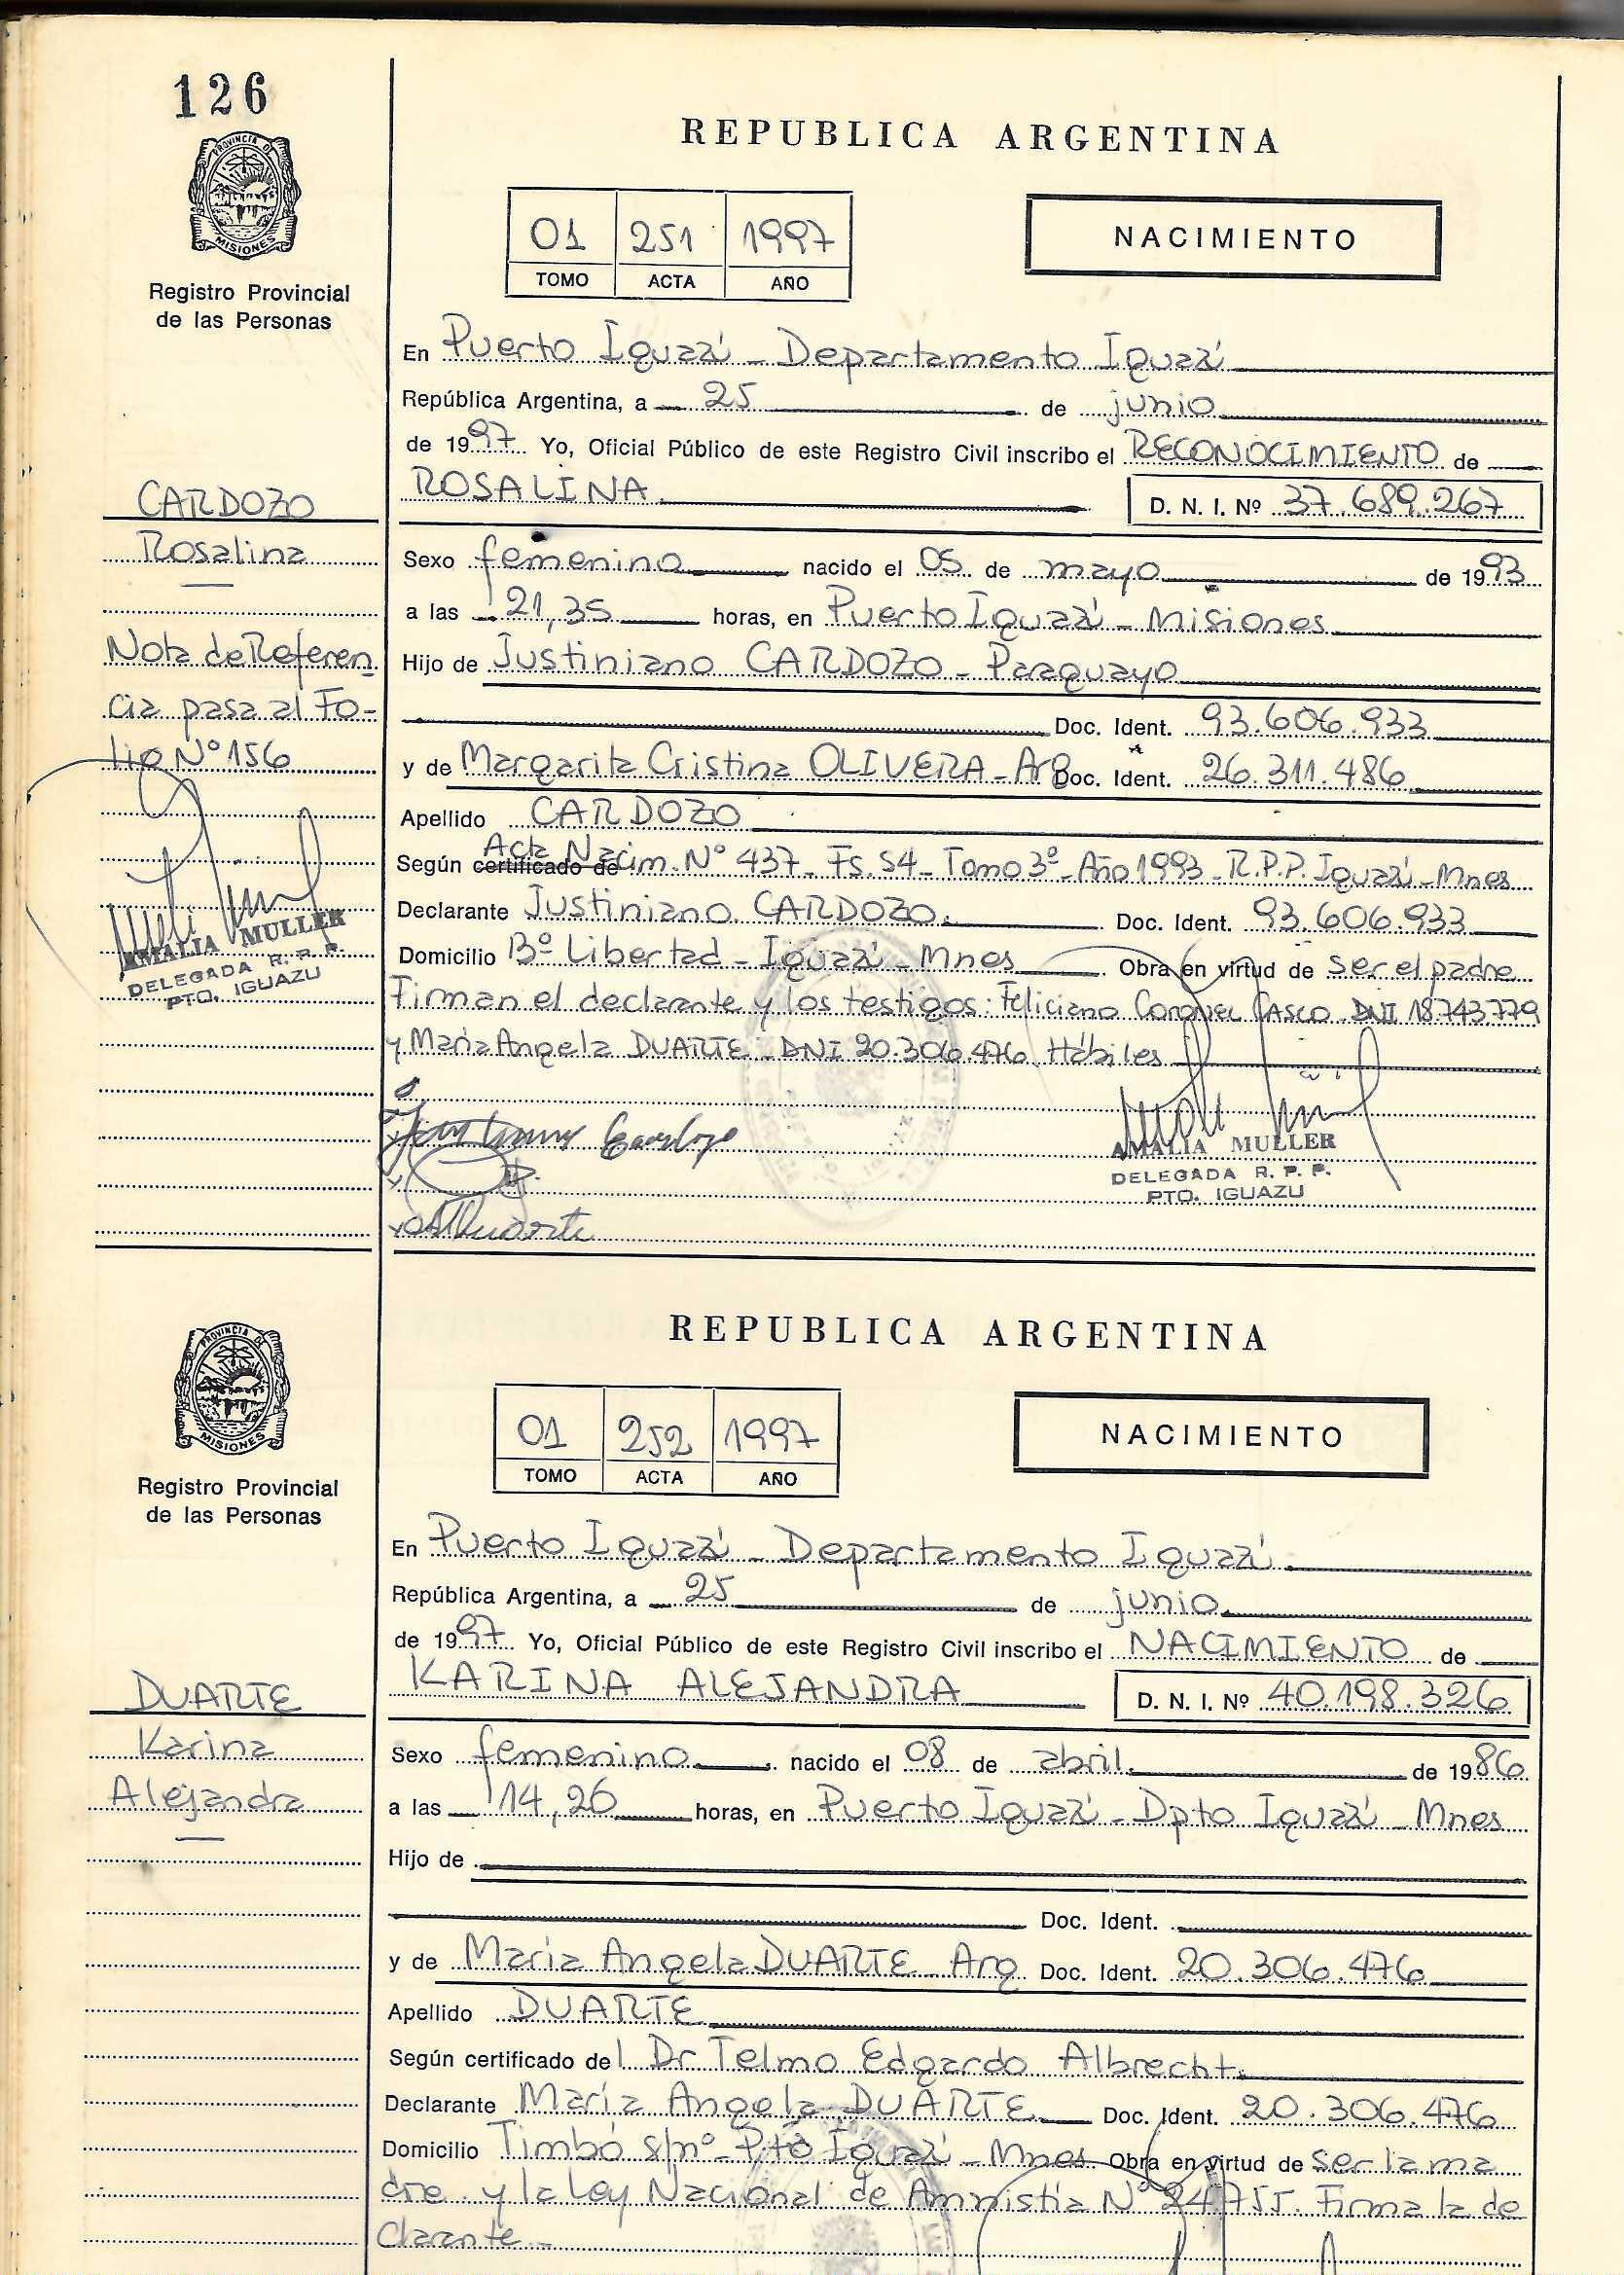 126
PROVINCIA DE
MISIONES
Registro Provincial
de las Personas
REPUBLICA ARGENTINA
01 251 1997
TOMO ACTA AÑO
NACIMIENTO
En Puerto Iguazú - Departamento Iguazú
República Argentina, a 25 de junio
de 1997 Yo, Oficial Público de este Registro Civil inscribo el RECONOCIMIENTO de
ROSALINA D. N. I. Nº 37.689.267
CARDOZO
Rosalina
Nota de Referen
cia pasa al Fo-
lio Nº 156
AMALIA MULLER
DELEGADA R. P. P.
PTO. IGUAZU
Sexo femenino nacido el 05 de mayo de 1993
a las 21,35 horas, en Puerto Iguazú - Misiones
Hijo de Justiniano CARDOZO - Paraguayo
Doc. Ident. 93.606.933
y de Margarita Cristina OLIVERA - Arg Doc. Ident. 26.311.486
Apellido CARDOZO
Según certificado de Acta Nacim. Nº 437 - Fs. 54 - Tomo 3º - Año 1993 - R.P.P. Iguazú - Mnes
Declarante Justiniano CARDOZO. Doc. Ident. 93.606.933
Domicilio Bº Libertad - Iguazú - Mnes Obra en virtud de ser el padre
Firman el declarante y los testigos: Feliciano Coronel Casco DNI 18.743.779
y Maria Angela DUARTE - DNI 20.306.476, Hábiles
AMALIA MULLER
DELEGADA R. P. P.
PTO. IGUAZU
PROVINCIA DE
MISIONES
Registro Provincial
de las Personas
REPUBLICA ARGENTINA
01 252 1997
TOMO ACTA AÑO
NACIMIENTO
En Puerto Iguazú - Departamento Iguazú.
República Argentina, a 25 de junio.
de 1997 Yo, Oficial Público de este Registro Civil inscribo el NACIMIENTO de
KARINA ALEJANDRA D. N. I. Nº 40.198.326
DUARTE
Karina
Alejandra
Sexo femenino nacido el 08 de abril. de 1986
a las 14,20 horas, en Puerto Iguazú - Dpto Iguazú - Mnes
Hijo de
Doc. Ident.
y de Maria Angela DUARTE - Arg Doc. Ident. 20.306.476
Apellido DUARTE
Según certificado del Dr Telmo Edgardo Albrecht.
Declarante María Angela DUARTE Doc. Ident. 20.306.476
Domicilio Timbó s/nº - Ptó Iguazú - Mnes Obra en virtud de ser la ma
dre y la Ley Nacional de Amnistía Nº 24.755. Firma la de
clarante -